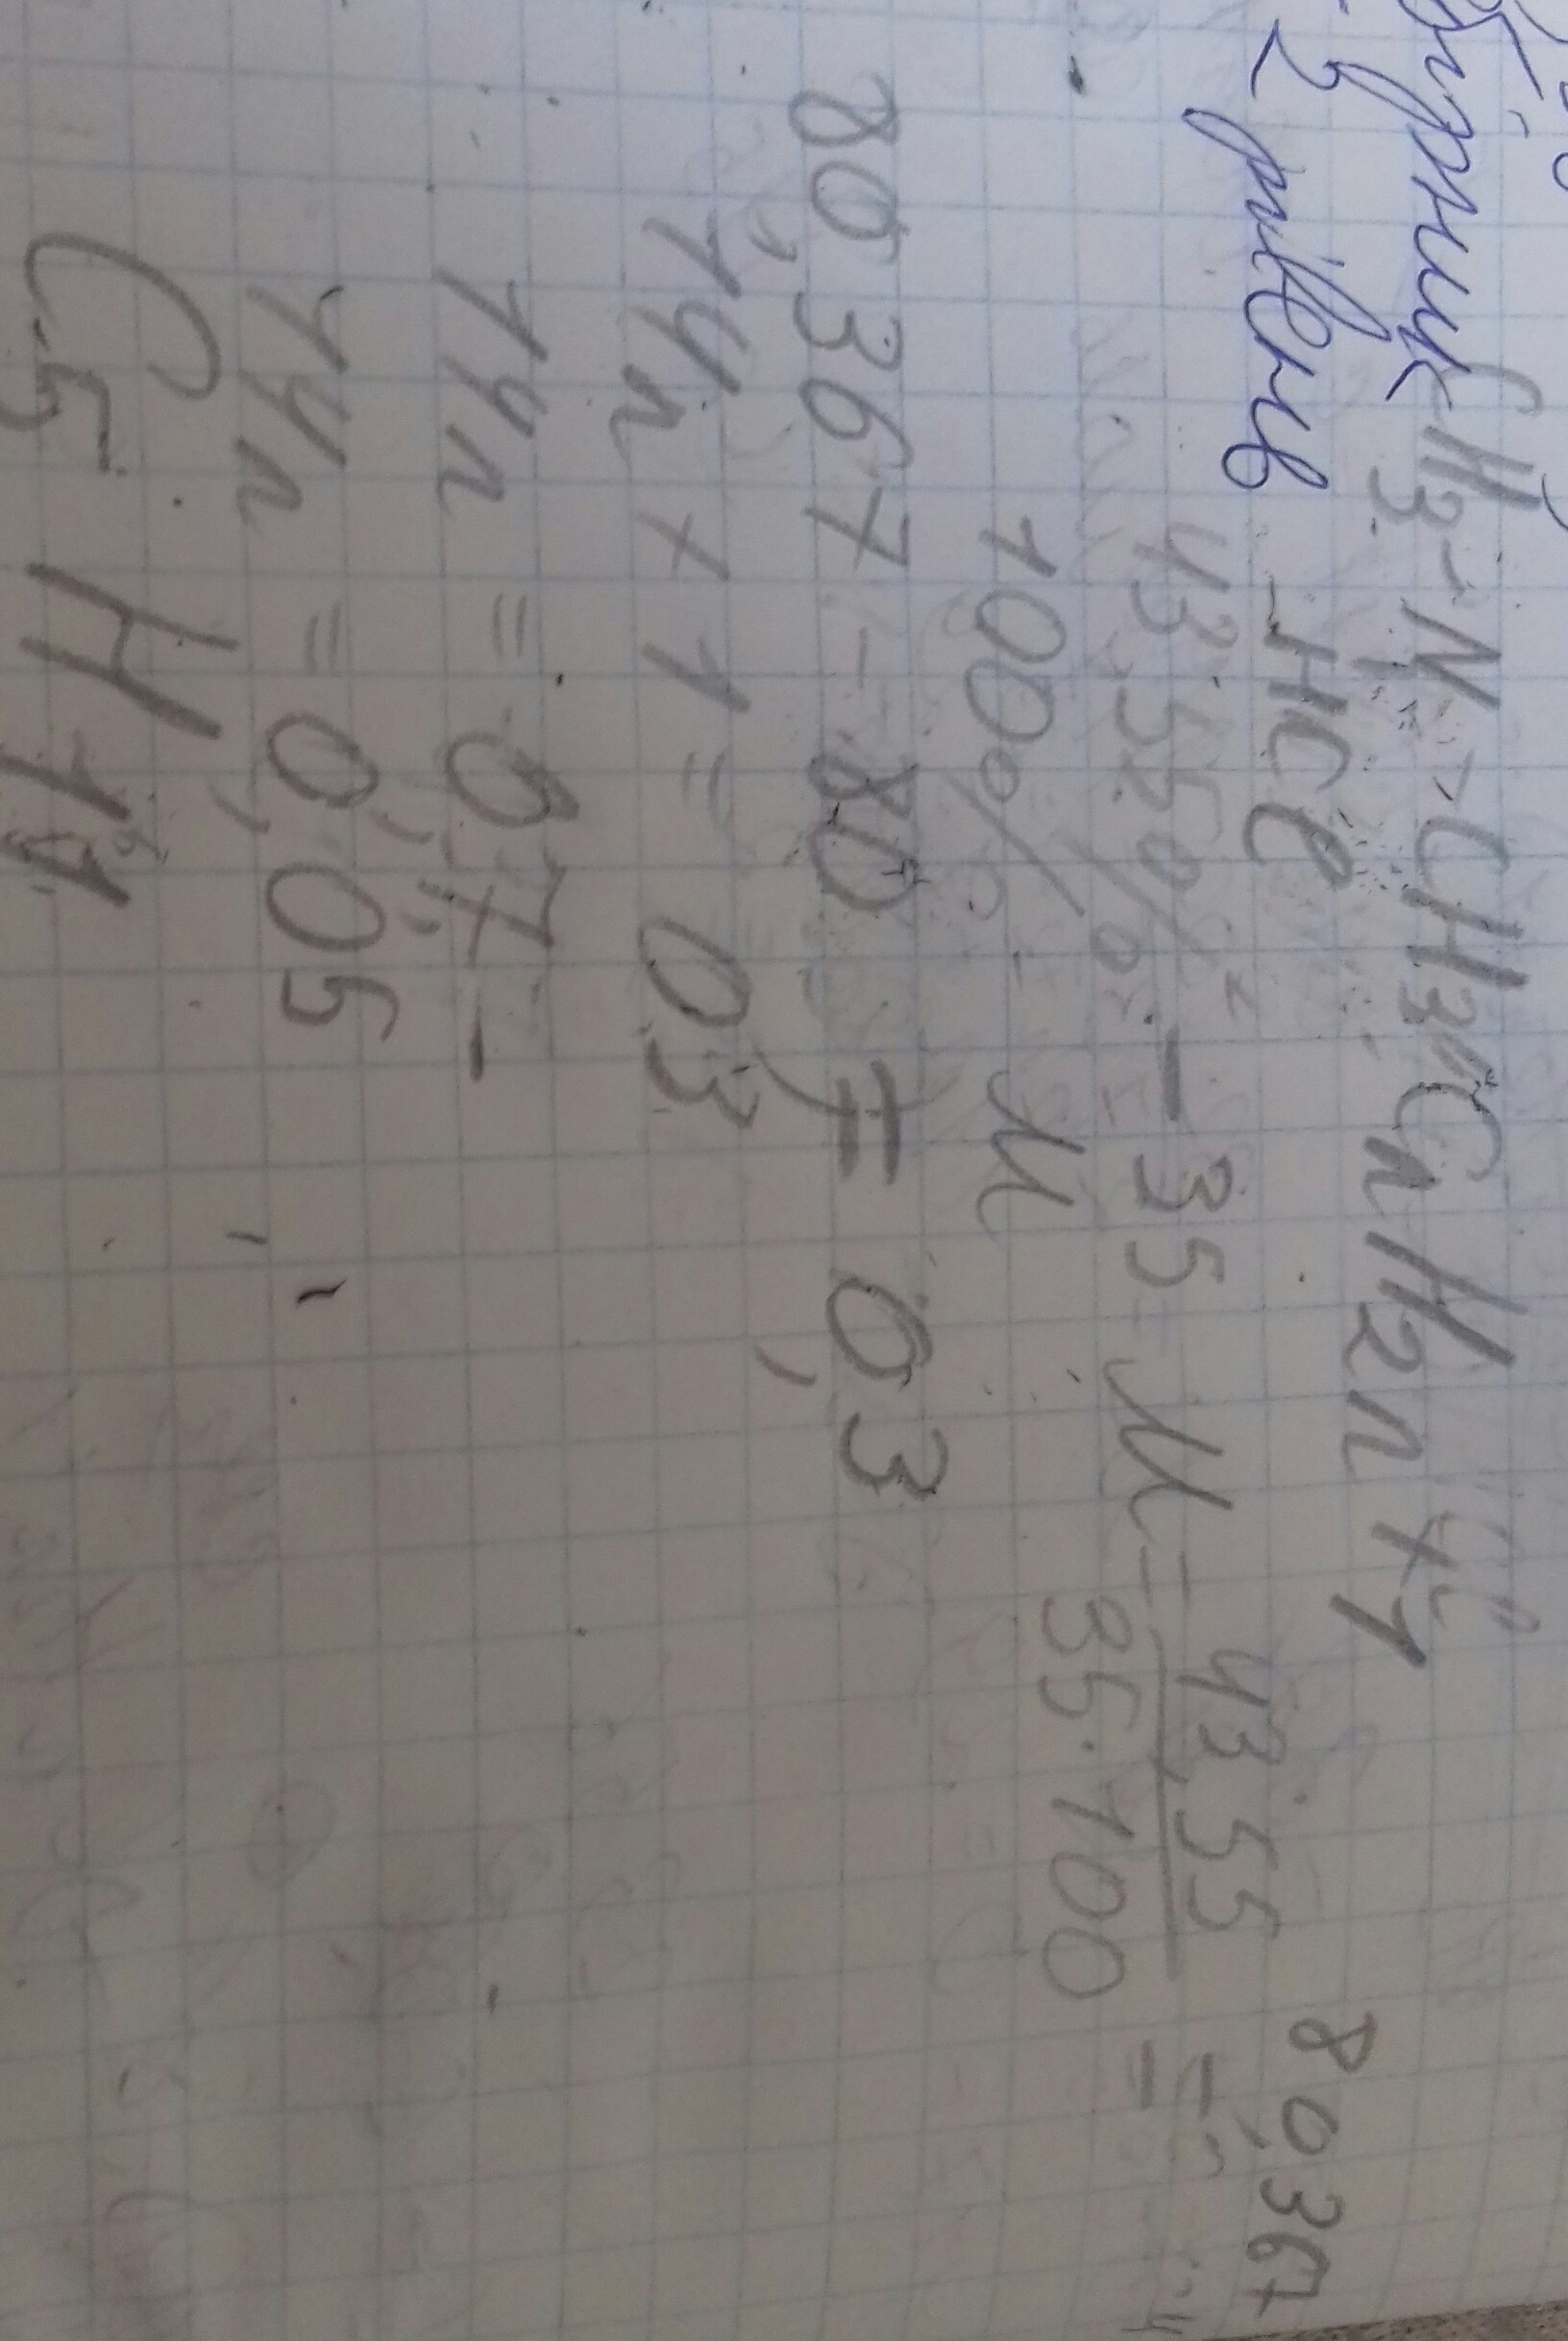 2 рівень
CH3-N-CH3·CnH2n+1
-HCl
43,55% - 35 M = 43,55 / 35·100 = 80,367
100% M
80,367 - 80 = 0,3
14n + 1 = 0,3
14n = 0,7 -
14n = 0,05
C5 H11